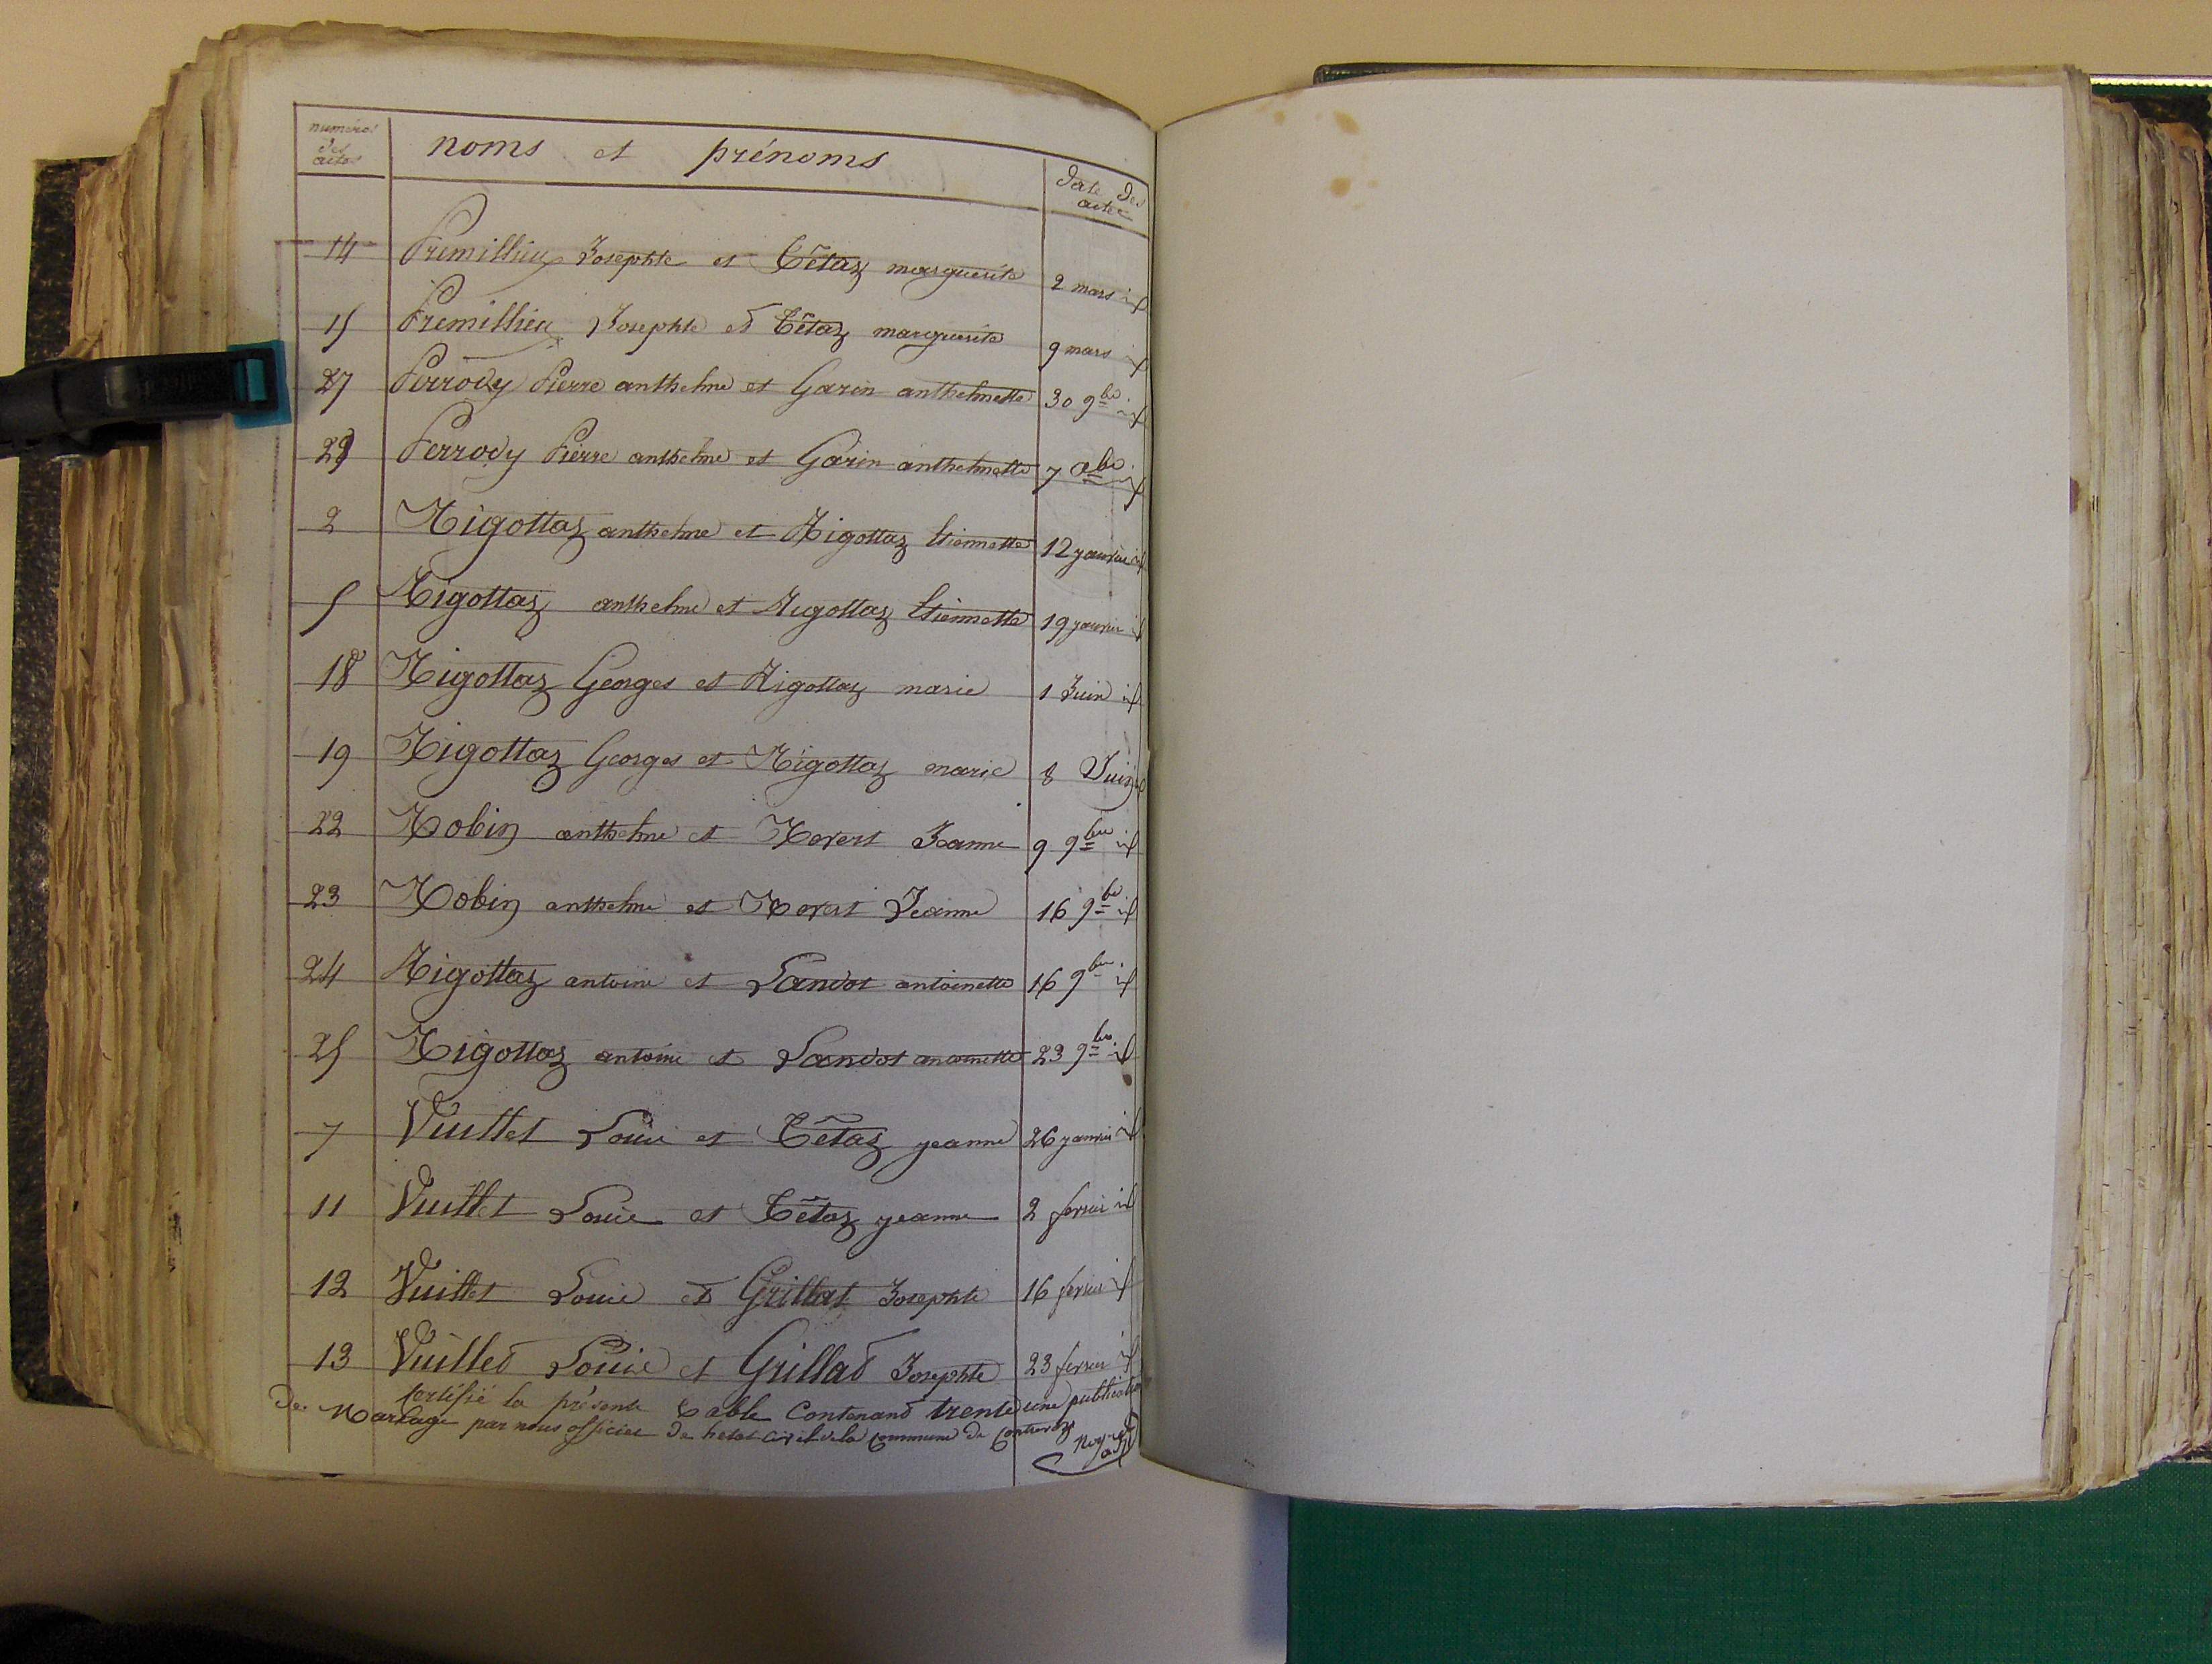 numéros des actes noms et prénoms date des actes
14 Premillieu Josephte et Tétaz marguerite 2 mars id
15 Premillieu Josephte et Tétaz marguerite 9 mars id
27 Perrody Pierre anthelme et Garin anthelmette 30 9bre id
29 Perrody Pierre anthelme et Garin anthelmette 7 Xbre id
2 Rigottaz anthelme et Rigottaz Etiennette 12 janvier id
5 Rigottaz anthelme et Rigottaz Etiennette 19 janvier id
18 Rigottaz Georges et Rigottaz marie 1 Juin id
19 Rigottaz Georges et Rigottaz marie 8 Juin id
22 Robin anthelme et Jeanne 9 9bre id
23 Robin anthelme et Jeanne 16 9bre id
24 Rigottaz antoine et Landot antoinette 16 9bre id
25 Rigottaz antoine et Landot antoinette 23 9bre id
7 Vuillet Louie et Tétaz jeanne 26 janvier id
11 Vuillet Louie et Tétaz jeanne 2 fevrier id
12 Vuillet Louie et Grillat Josephte 16 fevrier id
13 Vuillet Louie et Grillat Josephte 23 fevrier id
Certifié la présente table contenant trente une publication
de Mariage par nous officier de hetat civil de la commune de